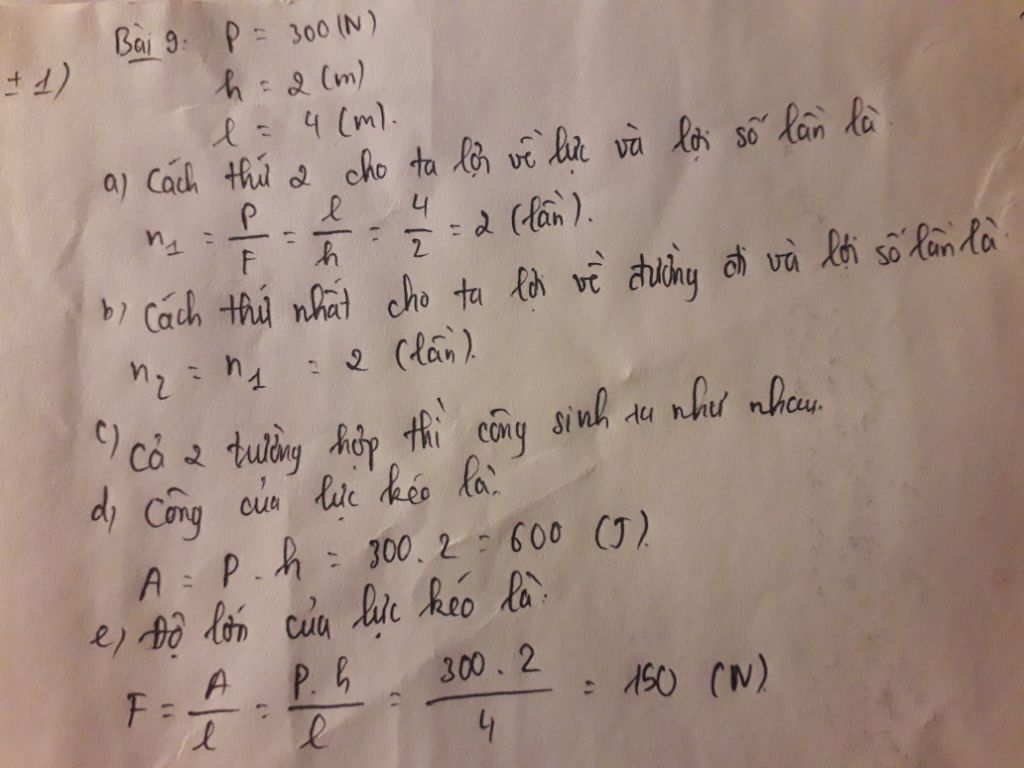 Bài 9: P = 300 (N)
± 1)
h = 2 (m)
l = 4 (m).
a) Cách thứ 2 cho ta lợi về lực và lợi số lần là
n1 = P/F = l/h = 4/2 = 2 (lần).
b) Cách thứ nhất cho ta lợi về đường đi và lợi số lần là
n2 = n1 = 2 (lần).
c) Cả 2 trường hợp thì công sinh ra như nhau.
d) Công của lực kéo là:
A = P . h = 300 . 2 = 600 (J).
e) Độ lớn của lực kéo là:
F = A/l = P.h/l = 300 . 2/4 = 150 (N).